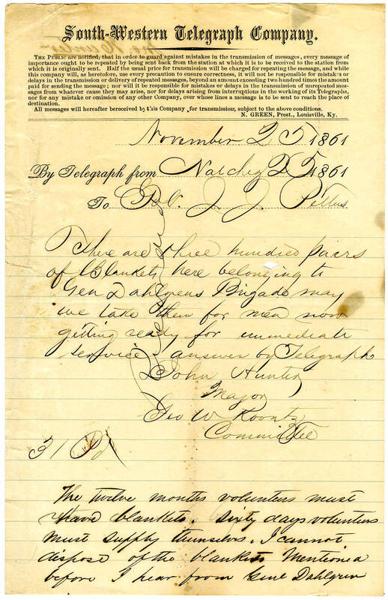 South-Western Telegraph Company.
THE PUBLIC are notified, that in order to guard against mistakes in the transmission of messages, every message of
importance ought to be repeated by being sent back from the station at which it is to be received to the station from
which it is originally sent. Half the usual price for transmission will be charged for repeating the message, and while
this company will, as heretofore, use every precaution to ensure correctness, it will not be responsible for mistakes or
delays in the transmission or delivery of repeated messages, beyond an amount exceeding two hundred times the amount
paid for sending the message; nor will it be responsible for mistakes or delays in the transmission of unrepeated messages
from whatever cause they may arise, nor for delays arising from interruptions in the working of its Telegraphs,
nor for any mistake or omission of any other Company, over whose lines a message is to be sent to reach the place of
destination.
All messages will hereafter be received by this Company for transmission, subject to the above conditions.
N. GREEN, Prest., Louisville, Ky.
November 25 1861
By Telegraph from Natchez 25 1861
To J. J. Pettus
There are three hundred pairs
of Blankets here belonging to
Gen Dahlgrens Brigade may
we take them for men now
getting ready for immediate
service answer by Telegraph
John Hunter
Major
Geo W Koontz
Committee
31 Pd
The twelve months volunteers must
have blankets. Sixty days volunteers
must supply themselves. I cannot
dispose of the blankets mentioned
before I hear from Genl Dahlgren